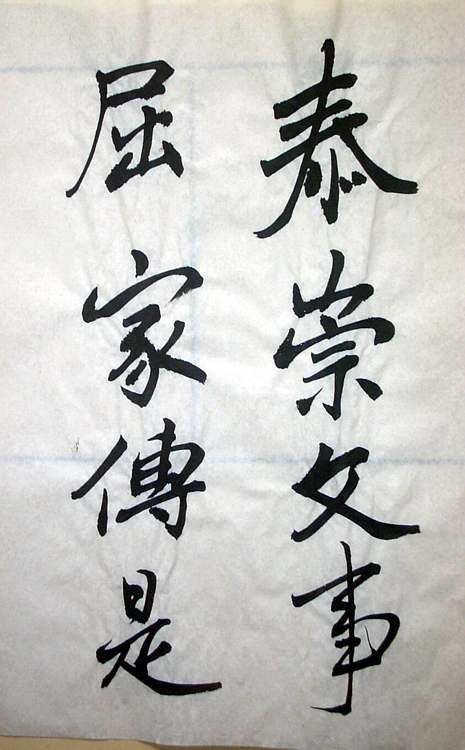 泰崇文事
屈家傳是